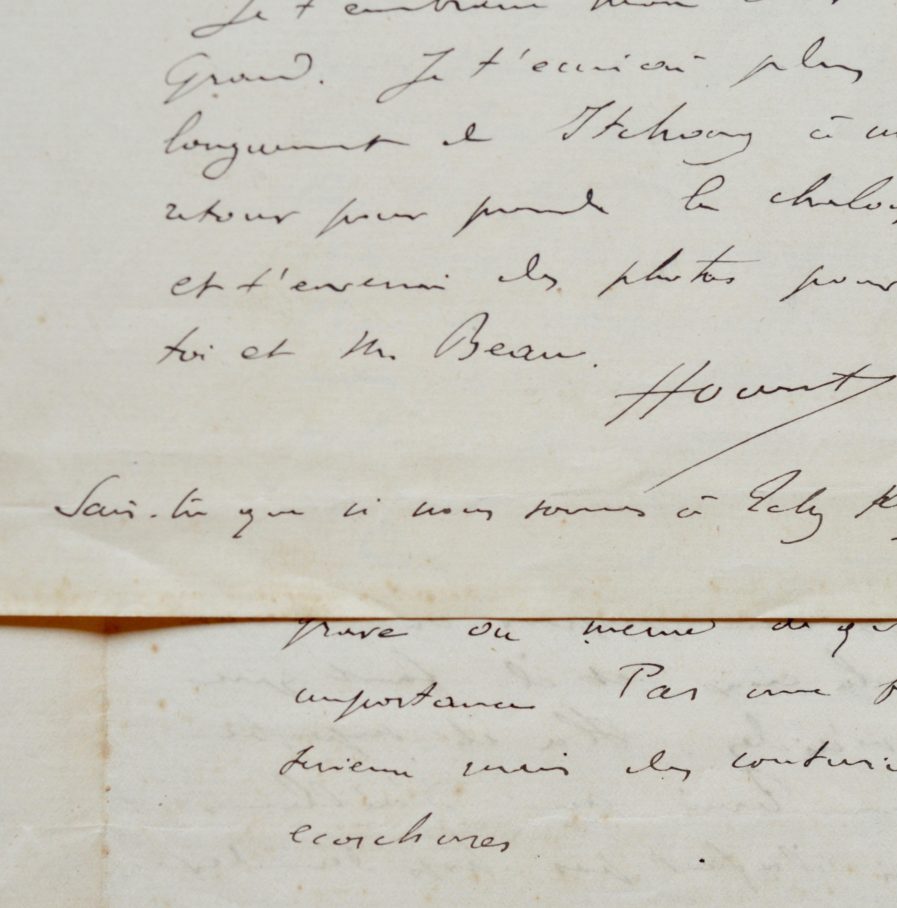 Je t'embrasse mon
Grand. Je t'écrirai plus
longuement de Itchang à
retour pour prendre la
et t'enverrai des photos pour
toi et Mr. Beau.
Hourst
Sais-tu que si nous sommes à
grave ou même de
importance Pas une
sérieuse mais des
ecorchures